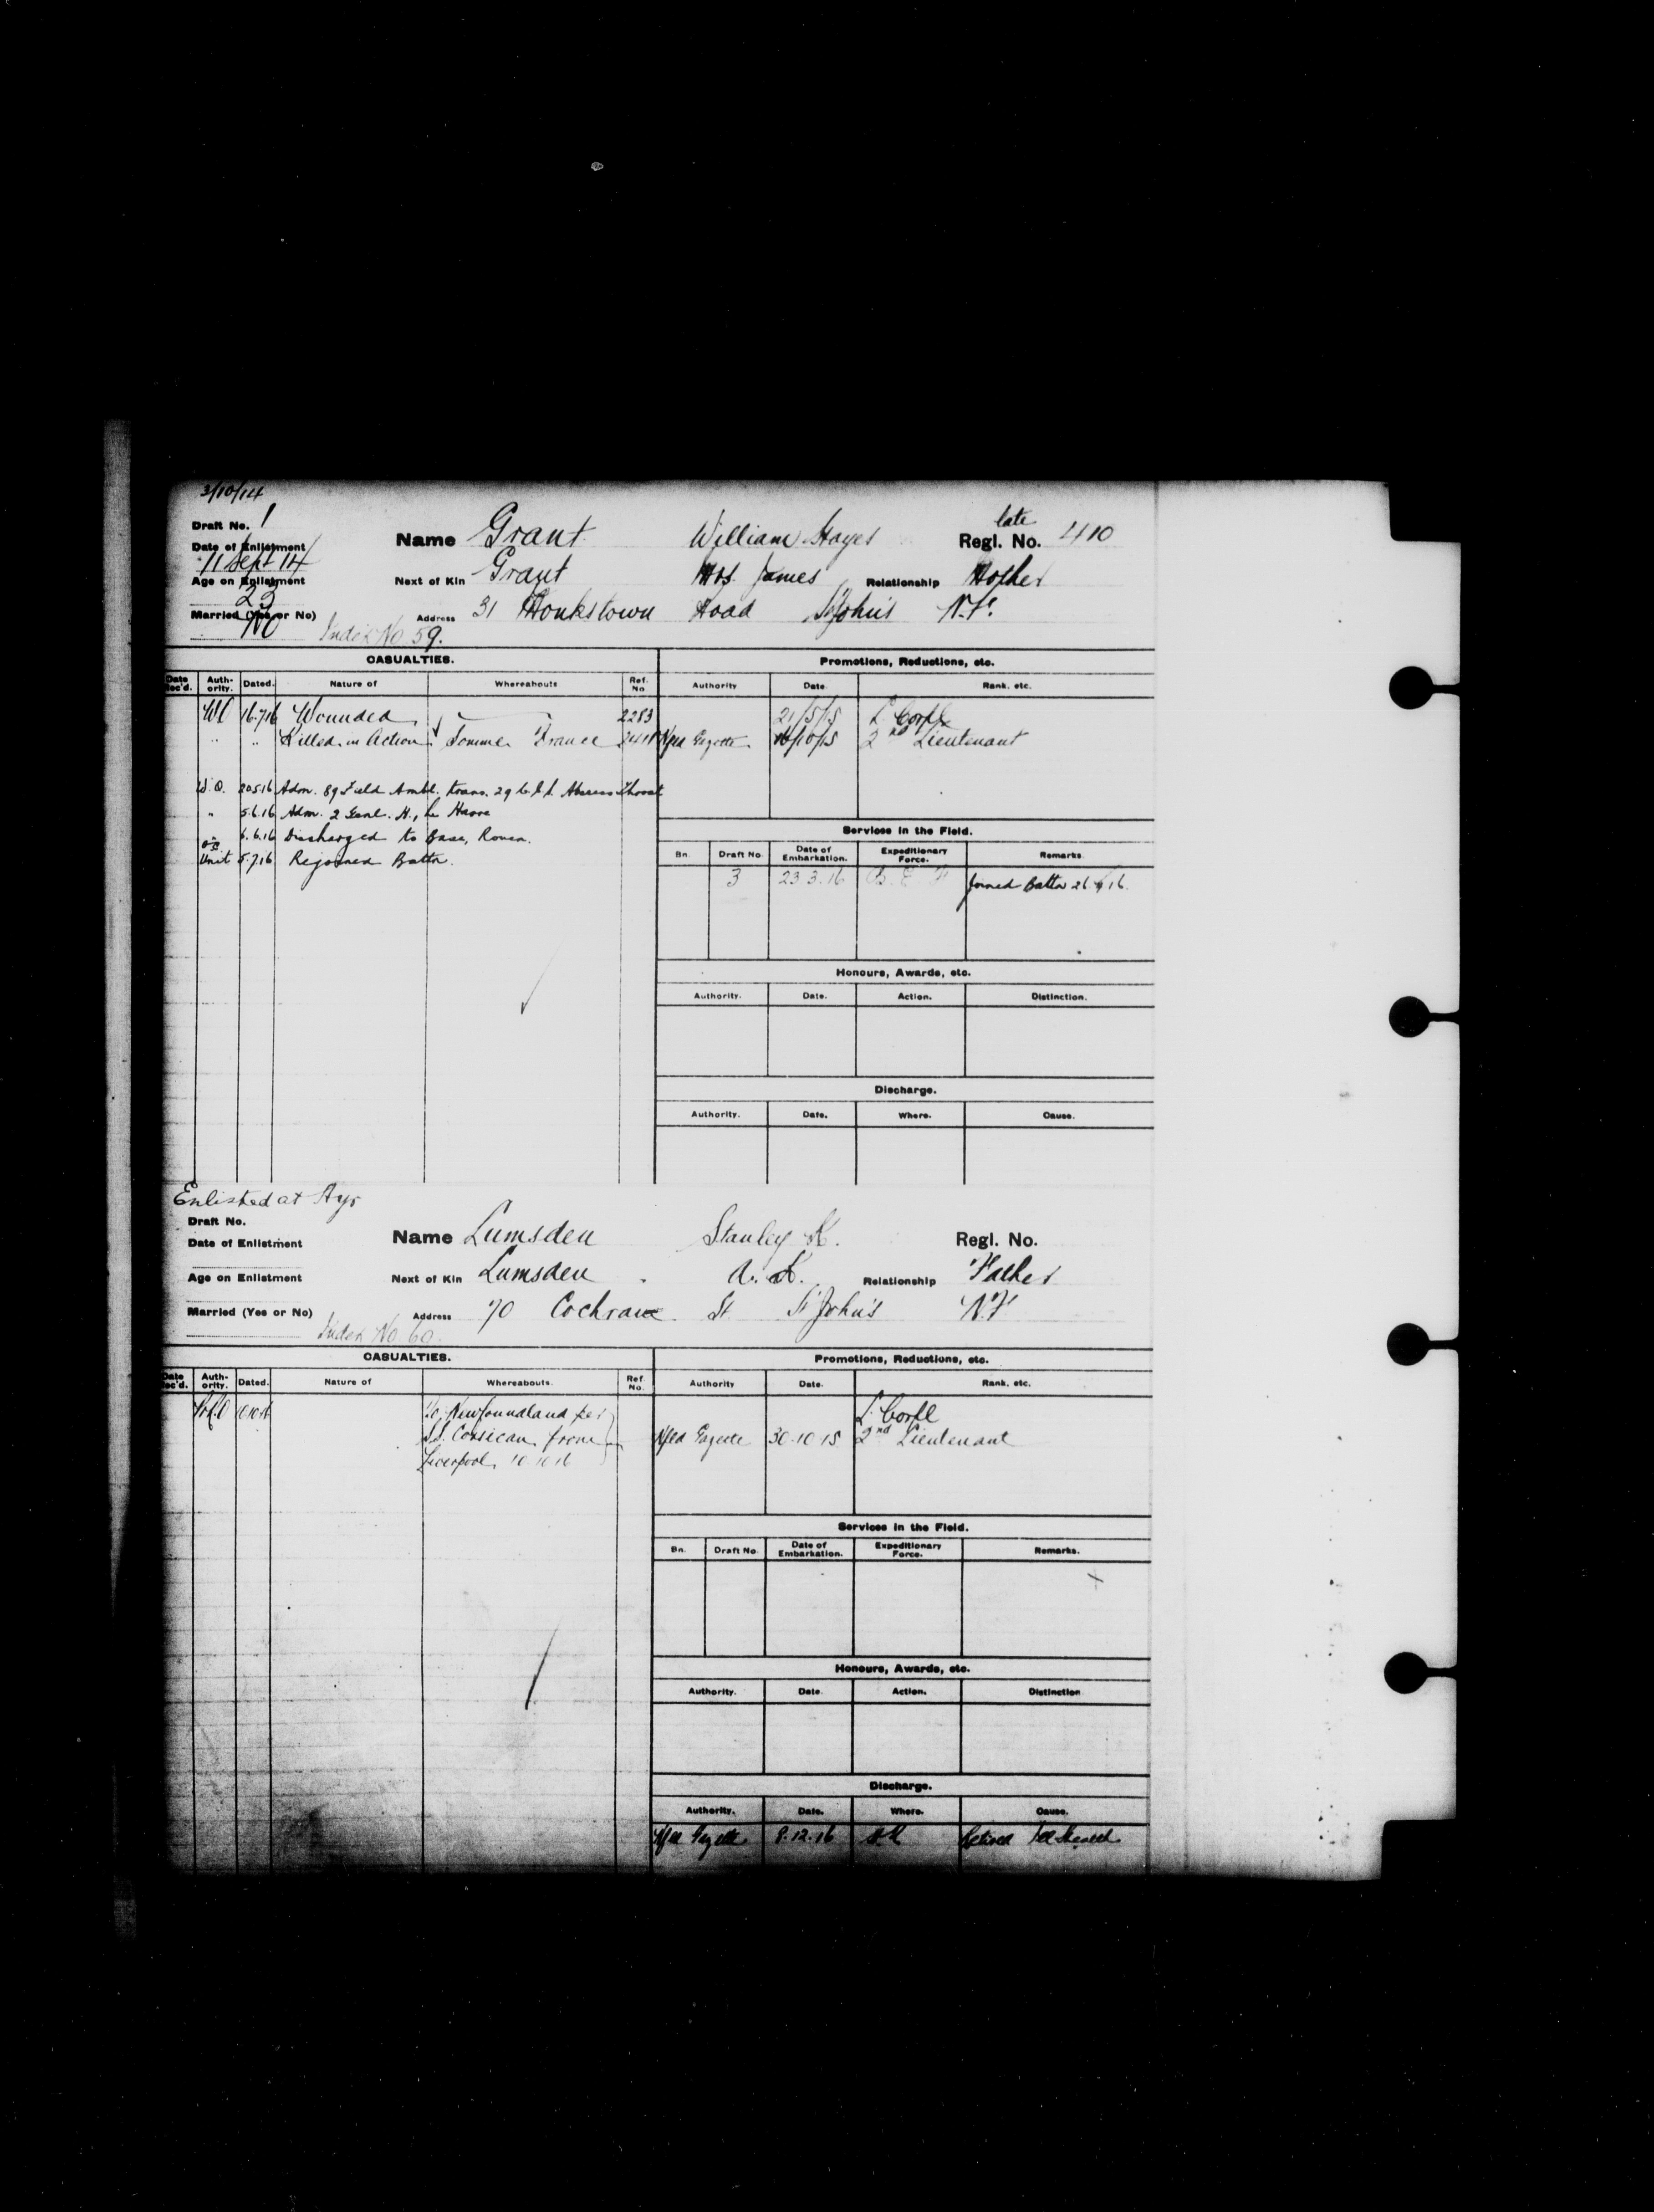 3/10/14
Draft No. 1
Name Grant William Hayes late Regl. No. 410
Date of Enlistment
11 Sept 14
Next of Kin Grant Mrs. James Relationship Mother
Age on Enlistment
23
Address 31 Monkstown Road St John's N.F.
Married (Yes or No)
No
Index No 59.
CASUALTIES. Promotions, Reductions, etc.
Date Rec'd. Auth-ority. Dated. Nature of Whereabouts Ref. No Authority Date. Rank, etc.
WO 16.7.16 Wounded 2283 21/5/15 L. Corpl.
" " Killed in Action Somme France Nfld Gazette 2nd Lieutenant
W.O. 30.5.16 Adm. 89 Field Ambl. trans. 29 Abscess Throat
" 5.6.16 Adm. 2 Genl. H., Le Havre
" 6.6.16 Discharged to Base, Rouen.
Unit 5.7.16 Rejoined Battn.
Services in the Field.
Bn. Draft No. Date of Embarkation. Expeditionary Force. Remarks
3 23.3.16 B. E. F Joined Battn 26 16.
Honours, Awards, etc.
Authority. Date. Action. Distinction.
Discharge.
Authority. Date. Where. Cause.
Enlisted at Ayr
Draft No.
Name Lumsden Stanley K. Regl. No.
Date of Enlistment
Next of Kin Lumsden A. K. Relationship Father
Age on Enlistment
Address 70 Cochrane St. St John's N.F
Married (Yes or No)
Index No. 60.
CASUALTIES. Promotions, Reductions, etc.
Date Rec'd. Auth-ority. Dated. Nature of Whereabouts. Ref. No. Authority Date. Rank, etc.
10.10.16 To Newfoundland per L. Corpl
S.S. Corsican from Nfld Gazette 30.10.15 2nd Lieutenant
Liverpool 10.10.16
Services in the Field.
Bn. Draft No. Date of Embarkation. Expeditionary Force. Remarks.
Honours, Awards, etc.
Authority. Date. Action. Distinction
Discharge.
Authority. Date. Where. Cause.
Nfld Gazette 8.12.16 Retired Ill Health